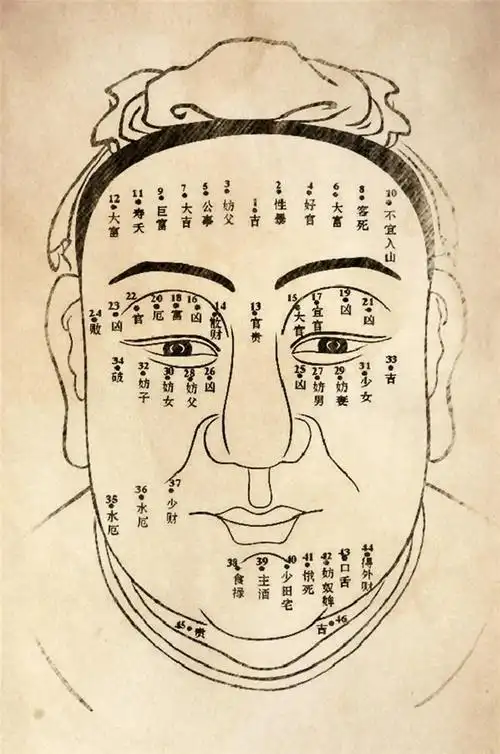 1 吉
2 性暴
3 妨父
4 好官
5 公事
6 大富
7 大吉
8 客死
9 巨富
10 不宜入山
11 寿夭
12 大富
13 官贵
14 散财
15 大官
16 凶
17 宜官
18 富
19 凶
20 厄
21 凶
22 官
23 凶
24 败
25 凶
26 凶
27 妨男
28 妨父
29 妨妻
30 妨女
31 少女
32 妨子
33 吉
34 破
35 水厄
36 水厄
37 少财
38 食禄
39 主酒
40 少田宅
41 饿死
42 妨奴婢
43 口舌
44 得外财
45 贵
46 吉